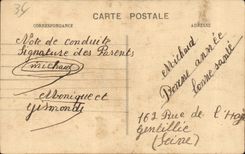 34
CARTE POSTALE
CORRESPONDANCE
ADRESSE
Note de conduite
Signature des Parents
Michaud
Monique et
Michaud
Bonne année
bonne santé
162 Rue de l'
Gentillie
(Seine)